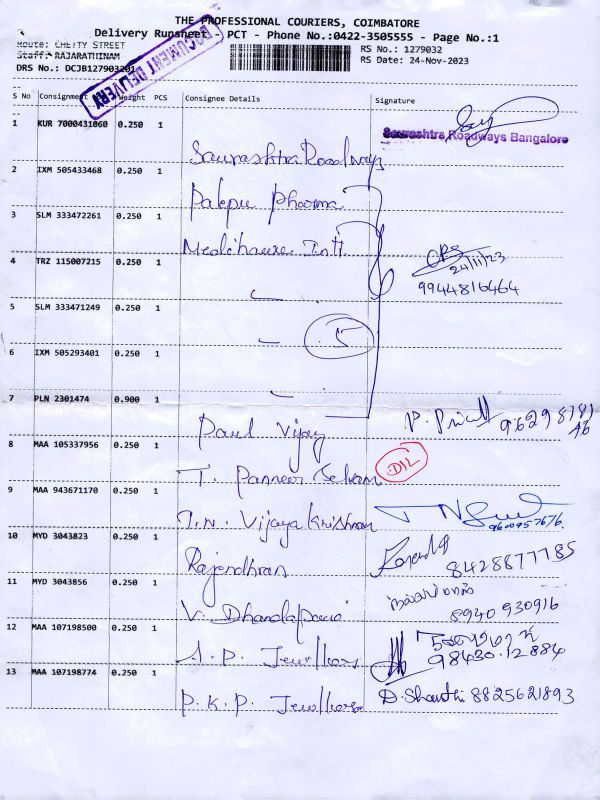 THE PROFESSIONAL COURIERS, COIMBATORE
Delivery Runsheet - PCT - Phone No.:0422-3505555 - Page No.:1
Route: CHETTY STREET
RS No.: 1279032
Staff: RAJARATHINAM
RS Date: 24-Nov-2023
DRS No.: DCJB1279032014
DOCUMENT DELIVERY
S No Consignment Weight PCS Consignee Details Signature
1 KUR 7000431060 0.250 1 Saurashtra Roadways
Saurashtra Roadways Bangalore
2 IXM 505433468 0.250 1 Palepu Pharma
3 SLM 333472261 0.250 1 Medchaure Intl
24/11/23
9944816464
4 TRZ 115007215 0.250 1
5 SLM 333471249 0.250 1
5
6 IXM 505293401 0.250 1
7 PLN 2301474 0.900 1 Paul Vijay
8 MAA 105337956 0.250 1 T. Panneer Selvam D/L
9 MAA 943671170 0.250 1 T.N. Vijaya Krishnan
10 MYD 3043823 0.250 1 Rajendhran 8428877785
11 MYD 3043856 0.250 1 V. Dhandapani 8940 930916
12 MAA 107198500 0.250 1 A. P. Jewllers 98430.12884
13 MAA 107198774 0.250 1 P. K. P. Jewllers D. Shanthi 8825621893